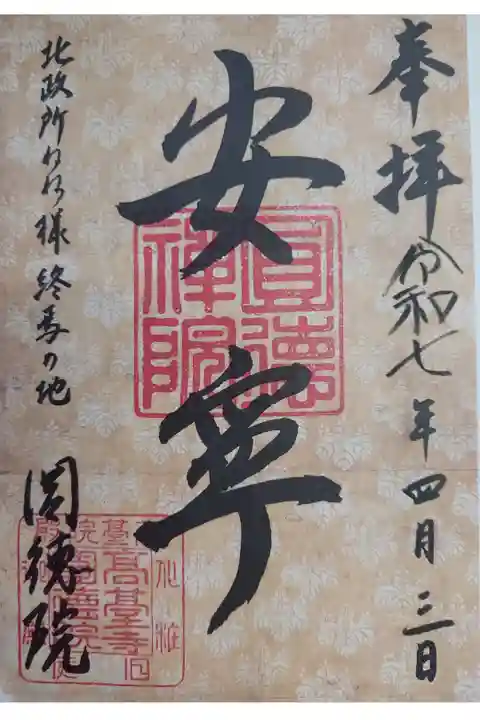 奉拝 令和七年四月三日
安寧
圓徳禅院
北政所ねね様終焉の地
圓徳院
高臺寺